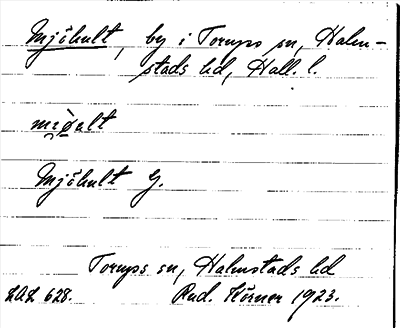 Mjöhult, by i Torups sn, Halm-
stads hd, Hall. l.
Mjöhult G.
Torups sn, Halmstads hd
LAL 628. Rud. Körner 1923.